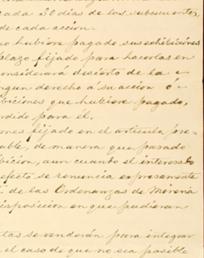 cada 30 dias de los subsecuentes
de cada accion.
no hubiere pagado sus exhibiciones
plazo fijado para hacerlas en
considerará desierto de la
ngun derecho a su accion o
biciones que hubiere pagado,
rdido para el.
ones fijado en el articulo pre-
able, de manera que pasado
bicion, aun cuando el interesado
efecto se renuncia expresamente
de las Ordenanzas de Mineria
isposicion en que pudieran
tas se venderán para integrar
el caso de que no sea posible